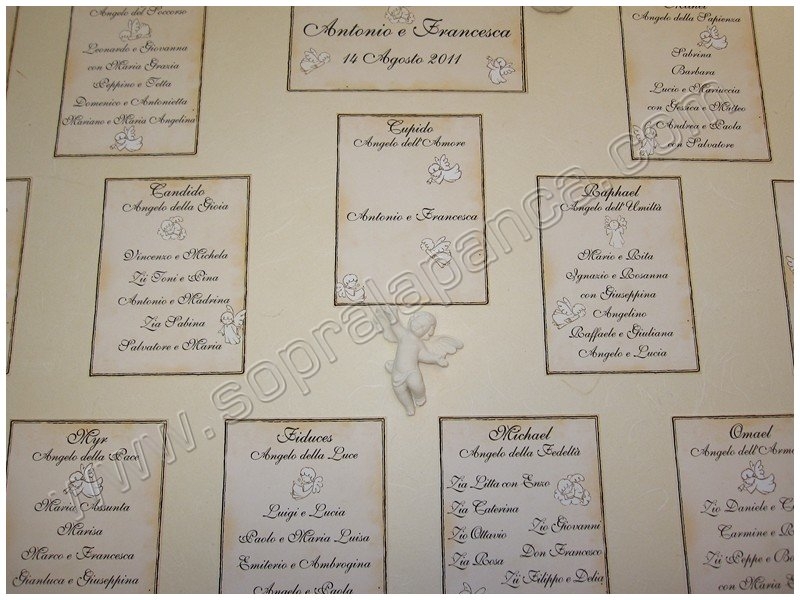 Angelo del Soccorso
Leonardo e Giovanna
con Maria Grazia
Peppino e Tetta
Domenico e Antonietta
Mariano e Maria Angelina
Antonio e Francesca
14 Agosto 2011
Angelo della Sapienza
Sabrina
Barbara
Lucio e Mariuccia
con Gessica e Matteo
Andrea e Paola
con Salvatore
Candido
Angelo della Gioia
Vincenzo e Michela
Zii Toni e Pina
Antonio e Madrina
Zia Sabina
Salvatore e Maria
Cupido
Angelo dell'Amore
Antonio e Francesca
Raphael
Angelo dell'Umiltà
Mario e Rita
Ignazio e Rosanna
con Giuseppina
Angelino
Raffaele e Giuliana
Angelo e Lucia
Myr
Angelo della Pace
Maria Assunta
Marisa
Marco e Francesca
Gianluca e Giuseppina
Fiduces
Angelo della Luce
Luigi e Lucia
Paolo e Maria Luisa
Emiterio e Ambrogina
Angelo e Paola
Michael
Angelo della Fedeltà
Zia Litta con Enzo
Zia Caterina
Zio Ottavio
Zio Giovanni
Zia Rosa
Don Francesco
Zii Filippo e Delia
Omael
Angelo dell'Armo
Zio Daniele e C
Carmine e B
Zii Peppe e Be
con Maria E
www.sopralapanca.com